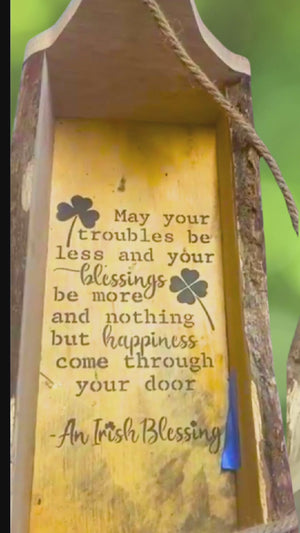 May your
troubles be
less and your
blessings
be more
and nothing
but happiness
come through
your door
-An Irish Blessing